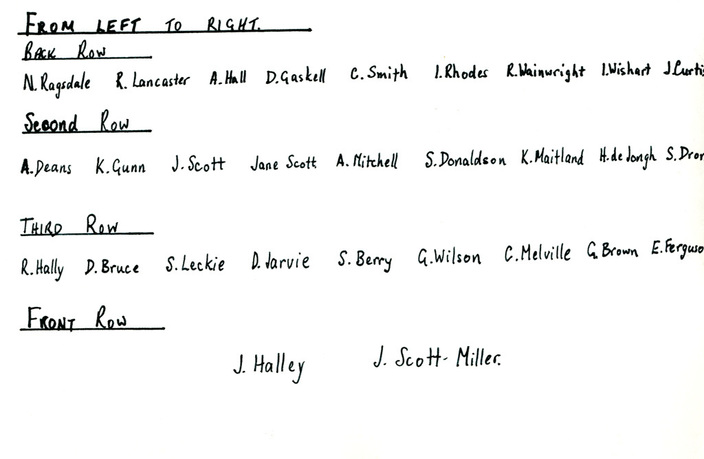 FROM LEFT TO RIGHT.
BACK ROW
N. Ragsdale R. Lancaster A. Hall D. Gaskell C. Smith I. Rhodes R. Wainwright I. Wishart J. Curtis
SECOND ROW
A. Deans K. Gunn J. Scott Jane Scott A. Mitchell S. Donaldson K. Maitland H. de Jongh S.
THIRD ROW
R. Hally D. Bruce S. Leckie D. Jarvie S. Berry G. Wilson C. Melville G. Brown E. Ferguso
FRONT ROW
J. Halley J. Scott-Miller.